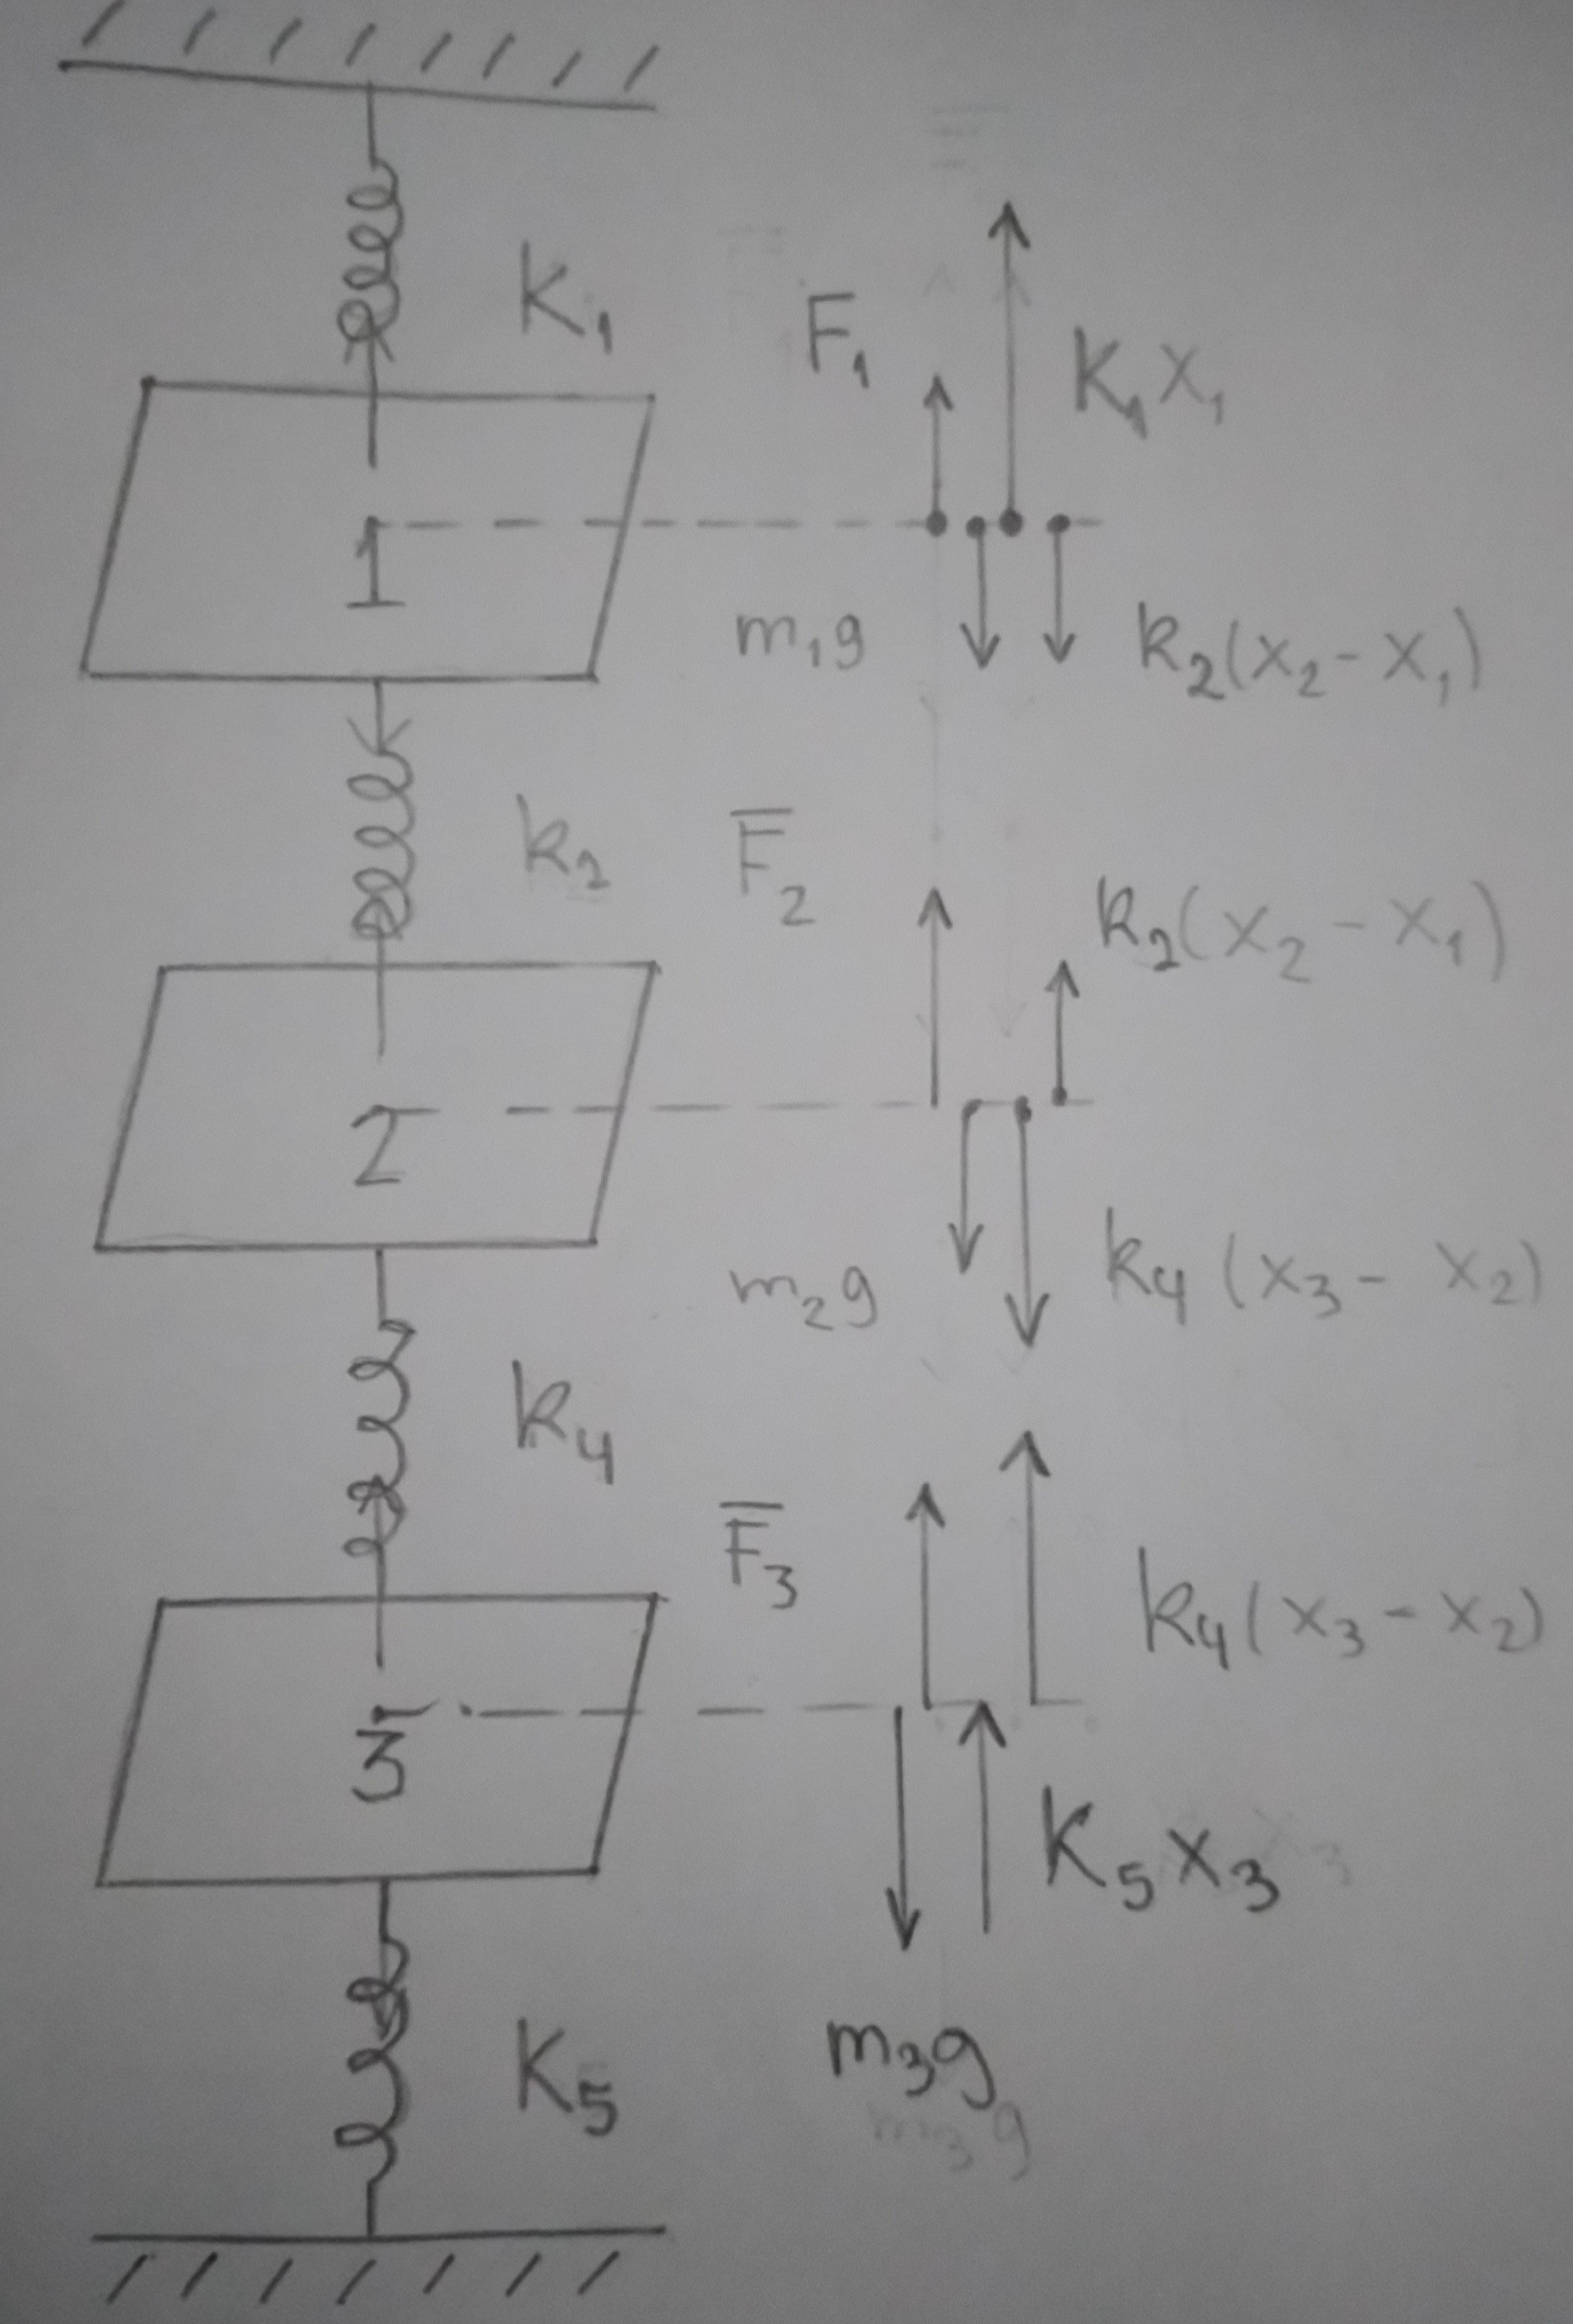 K₁
F₁
K₁x₁
1
m₁g
k₂(x₂-x₁)
k₂
F̅₂
k₂(x₂-x₁)
2
m₂g
k₄(x₃-x₂)
k₄
F̅₃
k₄(x₃-x₂)
3
K₅x₃
K₅
m₃g
m₃g